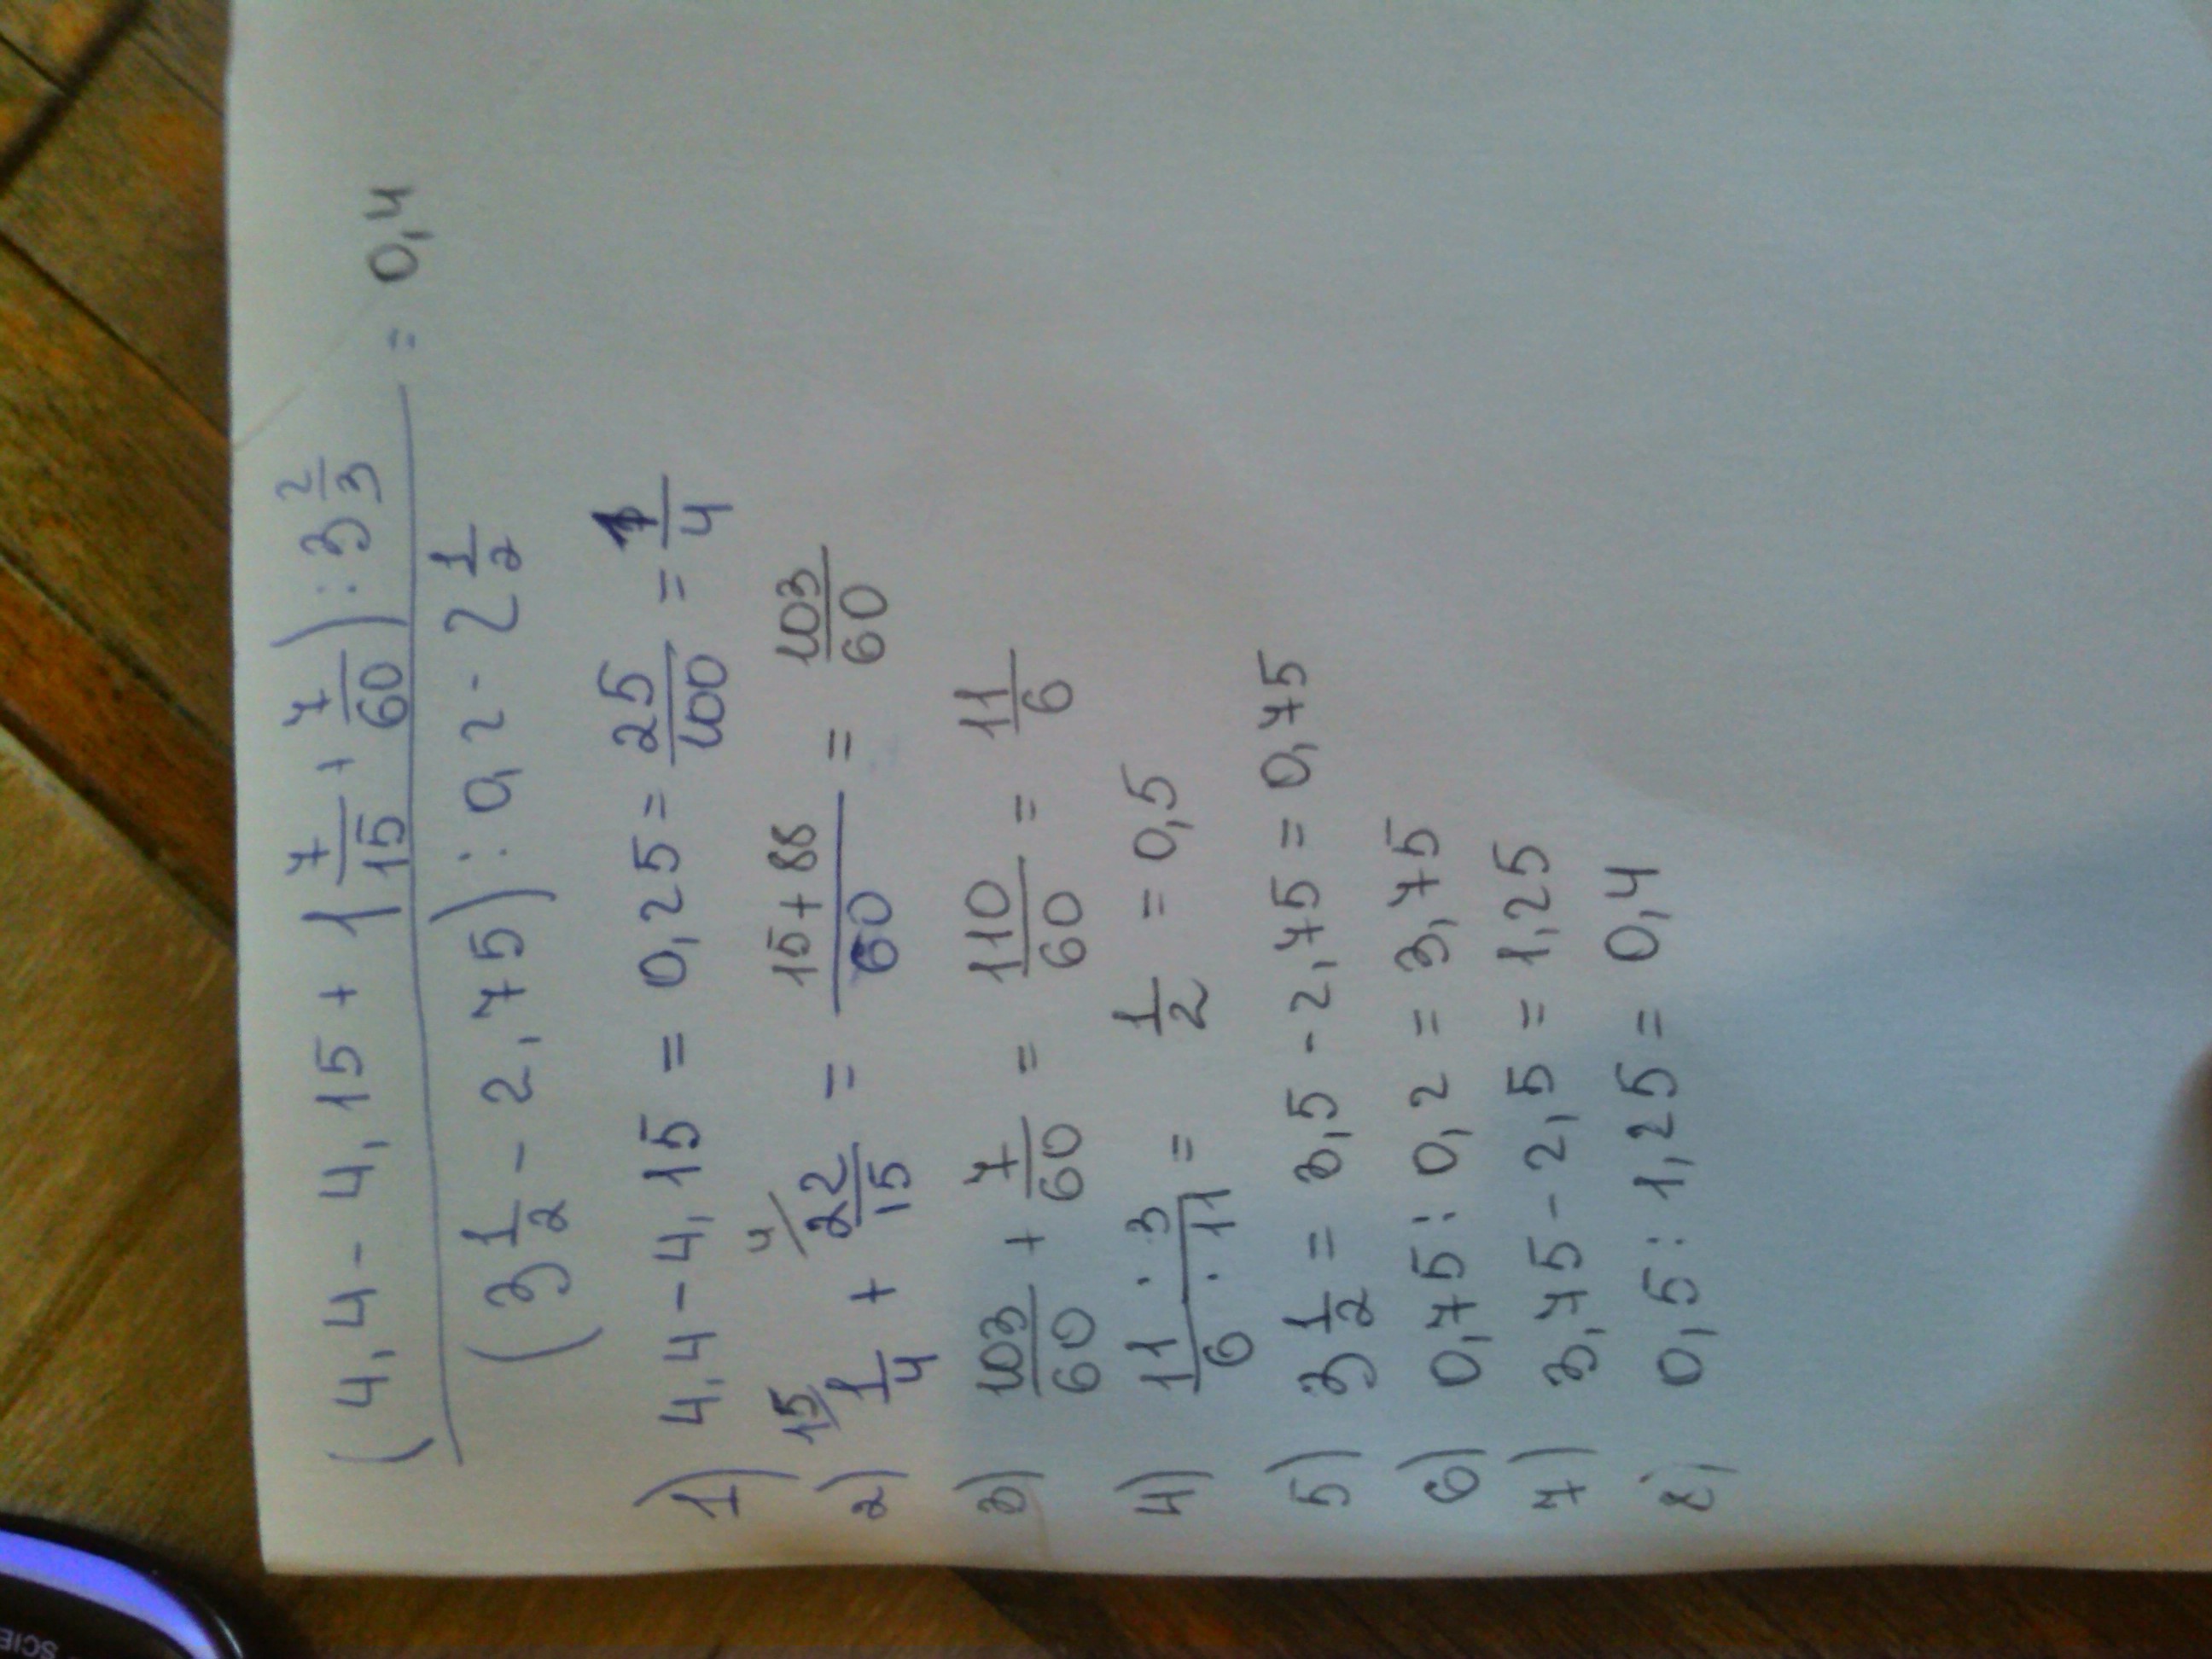 (4,4 - 4,15 + 1 7/15 + 7/60) : 3 2/3
(3 1/2 - 2,75) : 0,2 - 2 1/2 = 0,4
1) 4,4 - 4,15 = 0,25 = 25/100 = 1/4
2) 15/ 1/4 + 4/ 22/15 = 15+88/60 = 103/60
3) 103/60 + 7/60 = 110/60 = 11/6
4) 11 · 3/6 · 11 = 1/2 = 0,5
5) 3 1/2 = 3,5 - 2,75 = 0,75
6) 0,75 : 0,2 = 3,75
7) 3,75 - 2,5 = 1,25
8) 0,5 : 1,25 = 0,4
SCIE